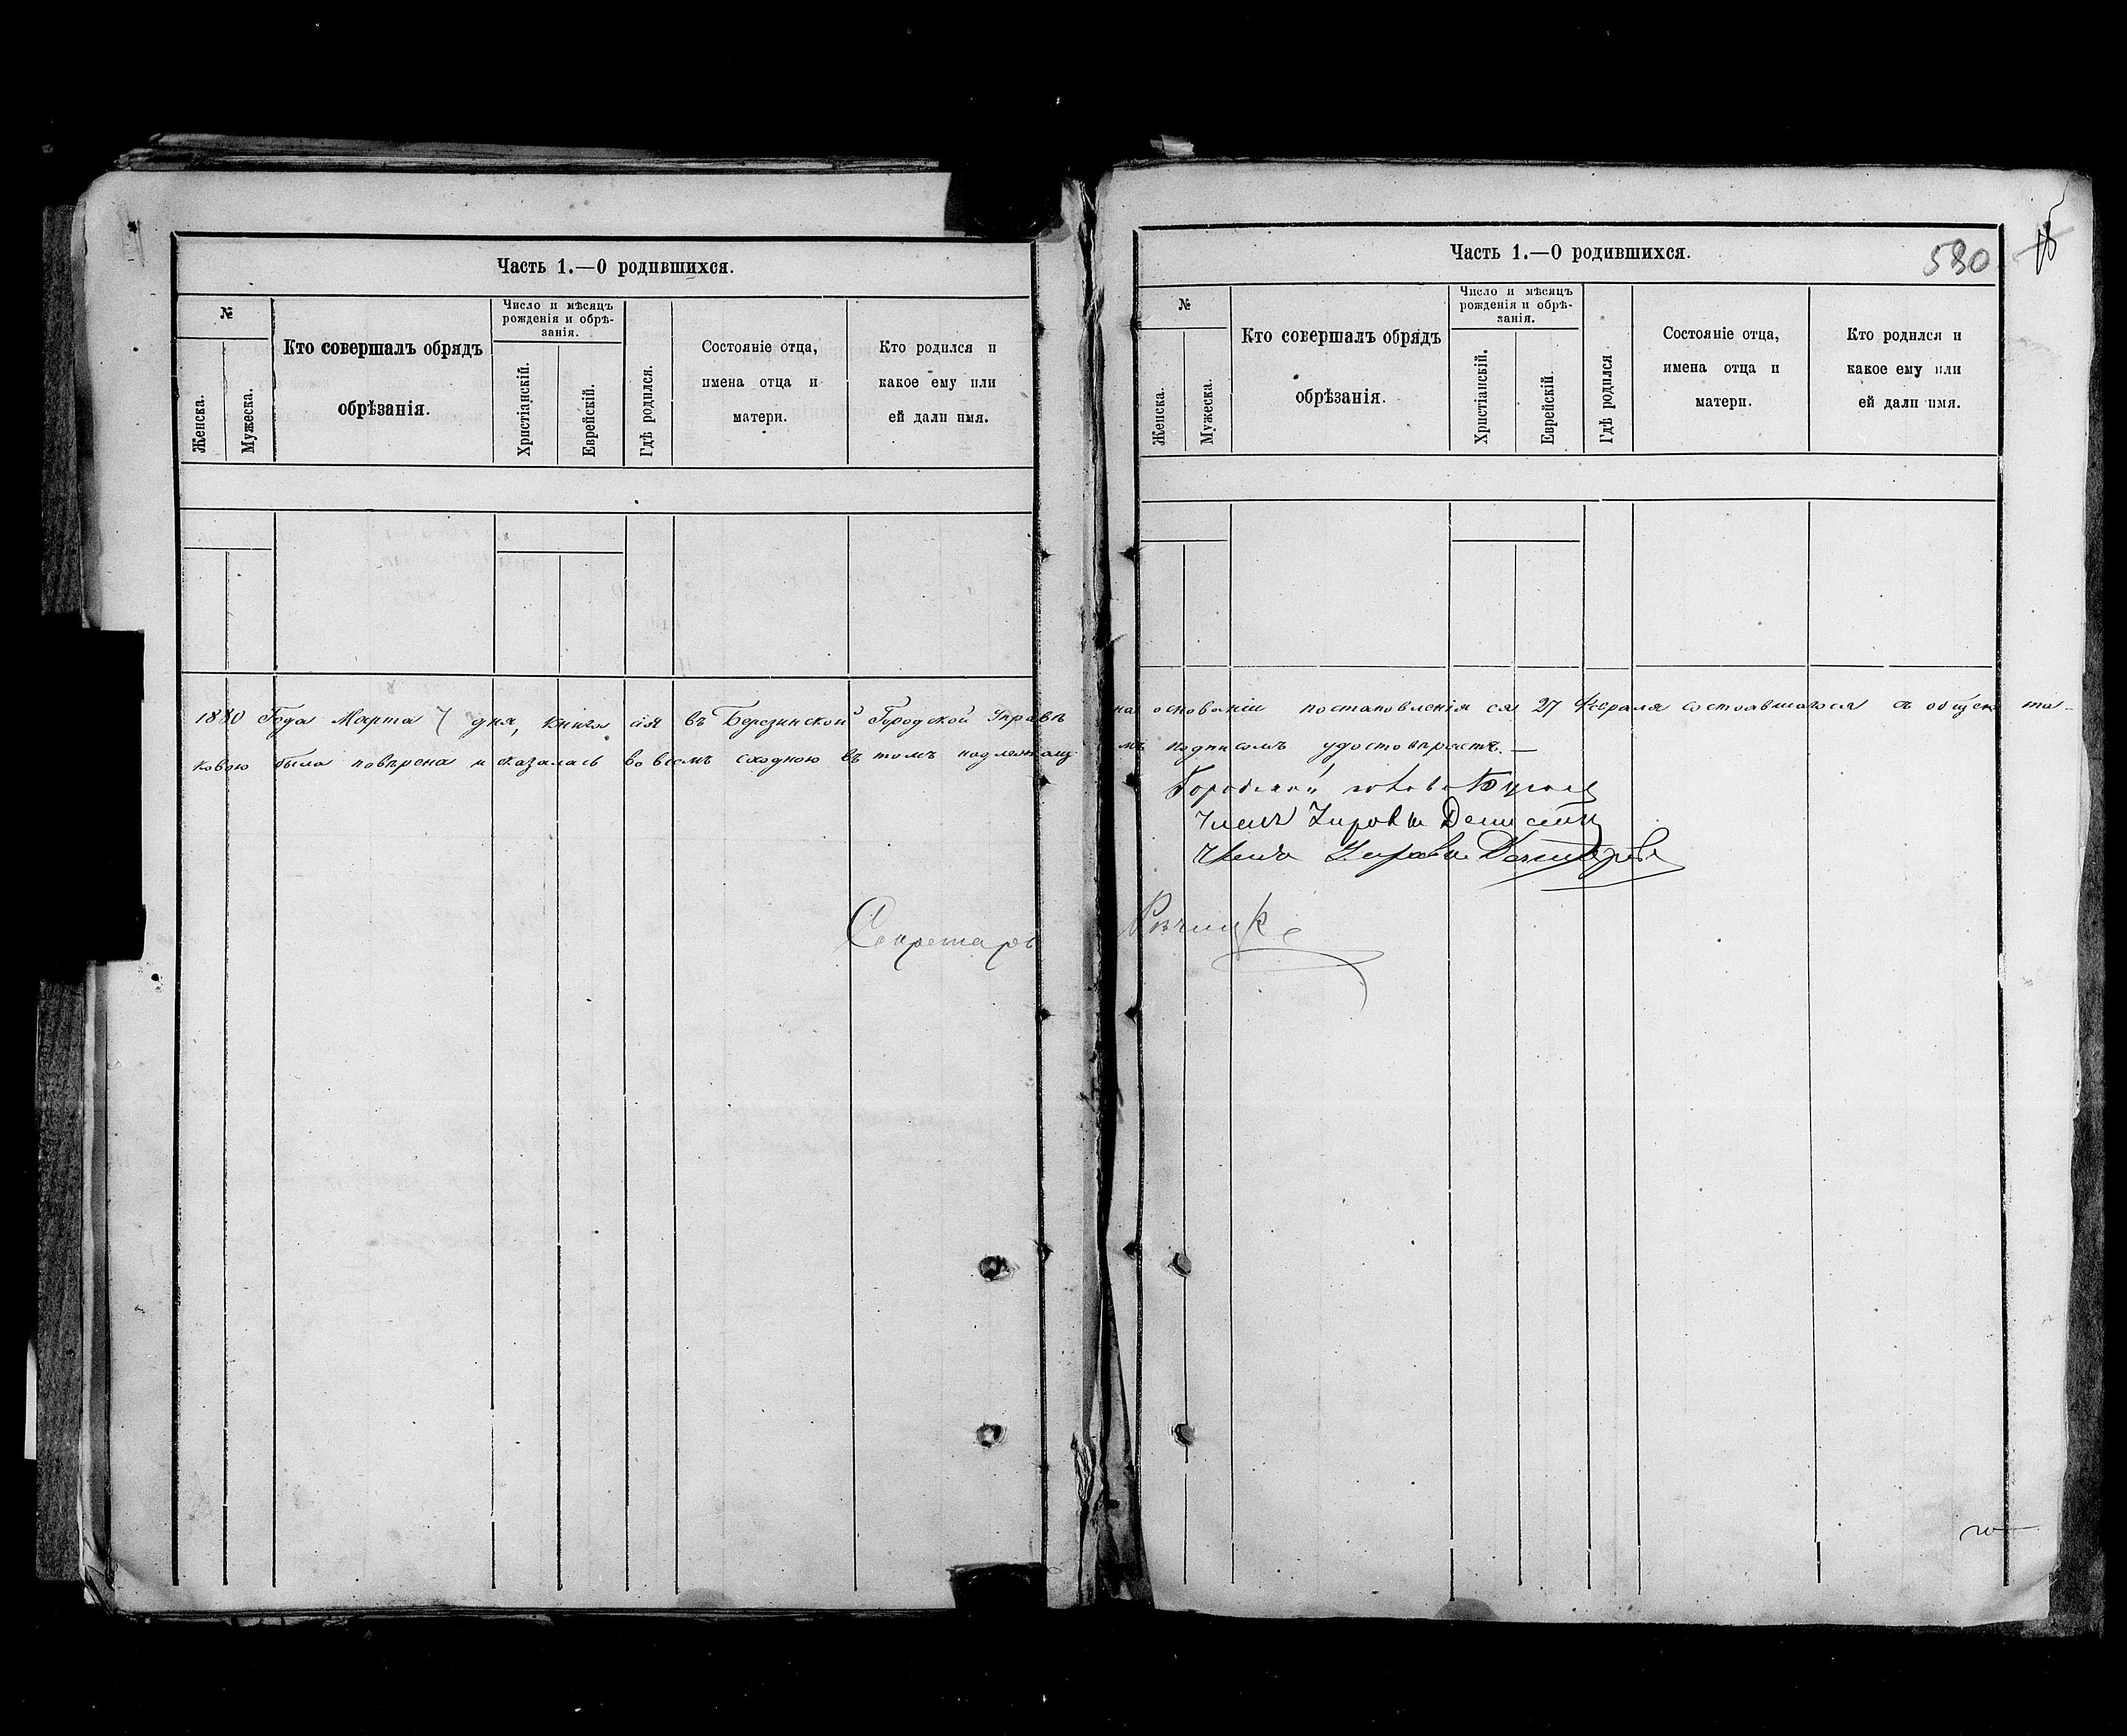 Часть 1.—О родившихся.
№
Женска.
Мужеска.
Кто совершалъ обрядъ
обрѣзанія.
Число и мѣсяцъ
рожденія и обрѣ-
занія.
Христіанскій.
Еврейскій.
Гдѣ родился.
Состояніе отца,
имена отца и
матери.
Кто родился и
какое ему или
ей дали имя.
1880 Года Марта 7 дня, книга сія въ Березинской Городской Управѣ
ковою была повѣрена и оказалась во всемъ сходною въ томъ надлежащ
Секретарь
Часть 1.—О родившихся.
580
№
Женска.
Мужеска.
Кто совершалъ обрядъ
обрѣзанія.
Число и мѣсяцъ
рожденія и обрѣ-
занія.
Христіанскій.
Еврейскій.
Гдѣ родился
Состояніе отца,
имена отца и
матери.
Кто родился и
какое ему или
ей дали имя.
на основаніи постановленія ея 27 Февраля состоявшагося съ общею та-
мъ подписомъ удостовѣряетъ.—
Городской голова
Членъ Управы
Членъ Управы